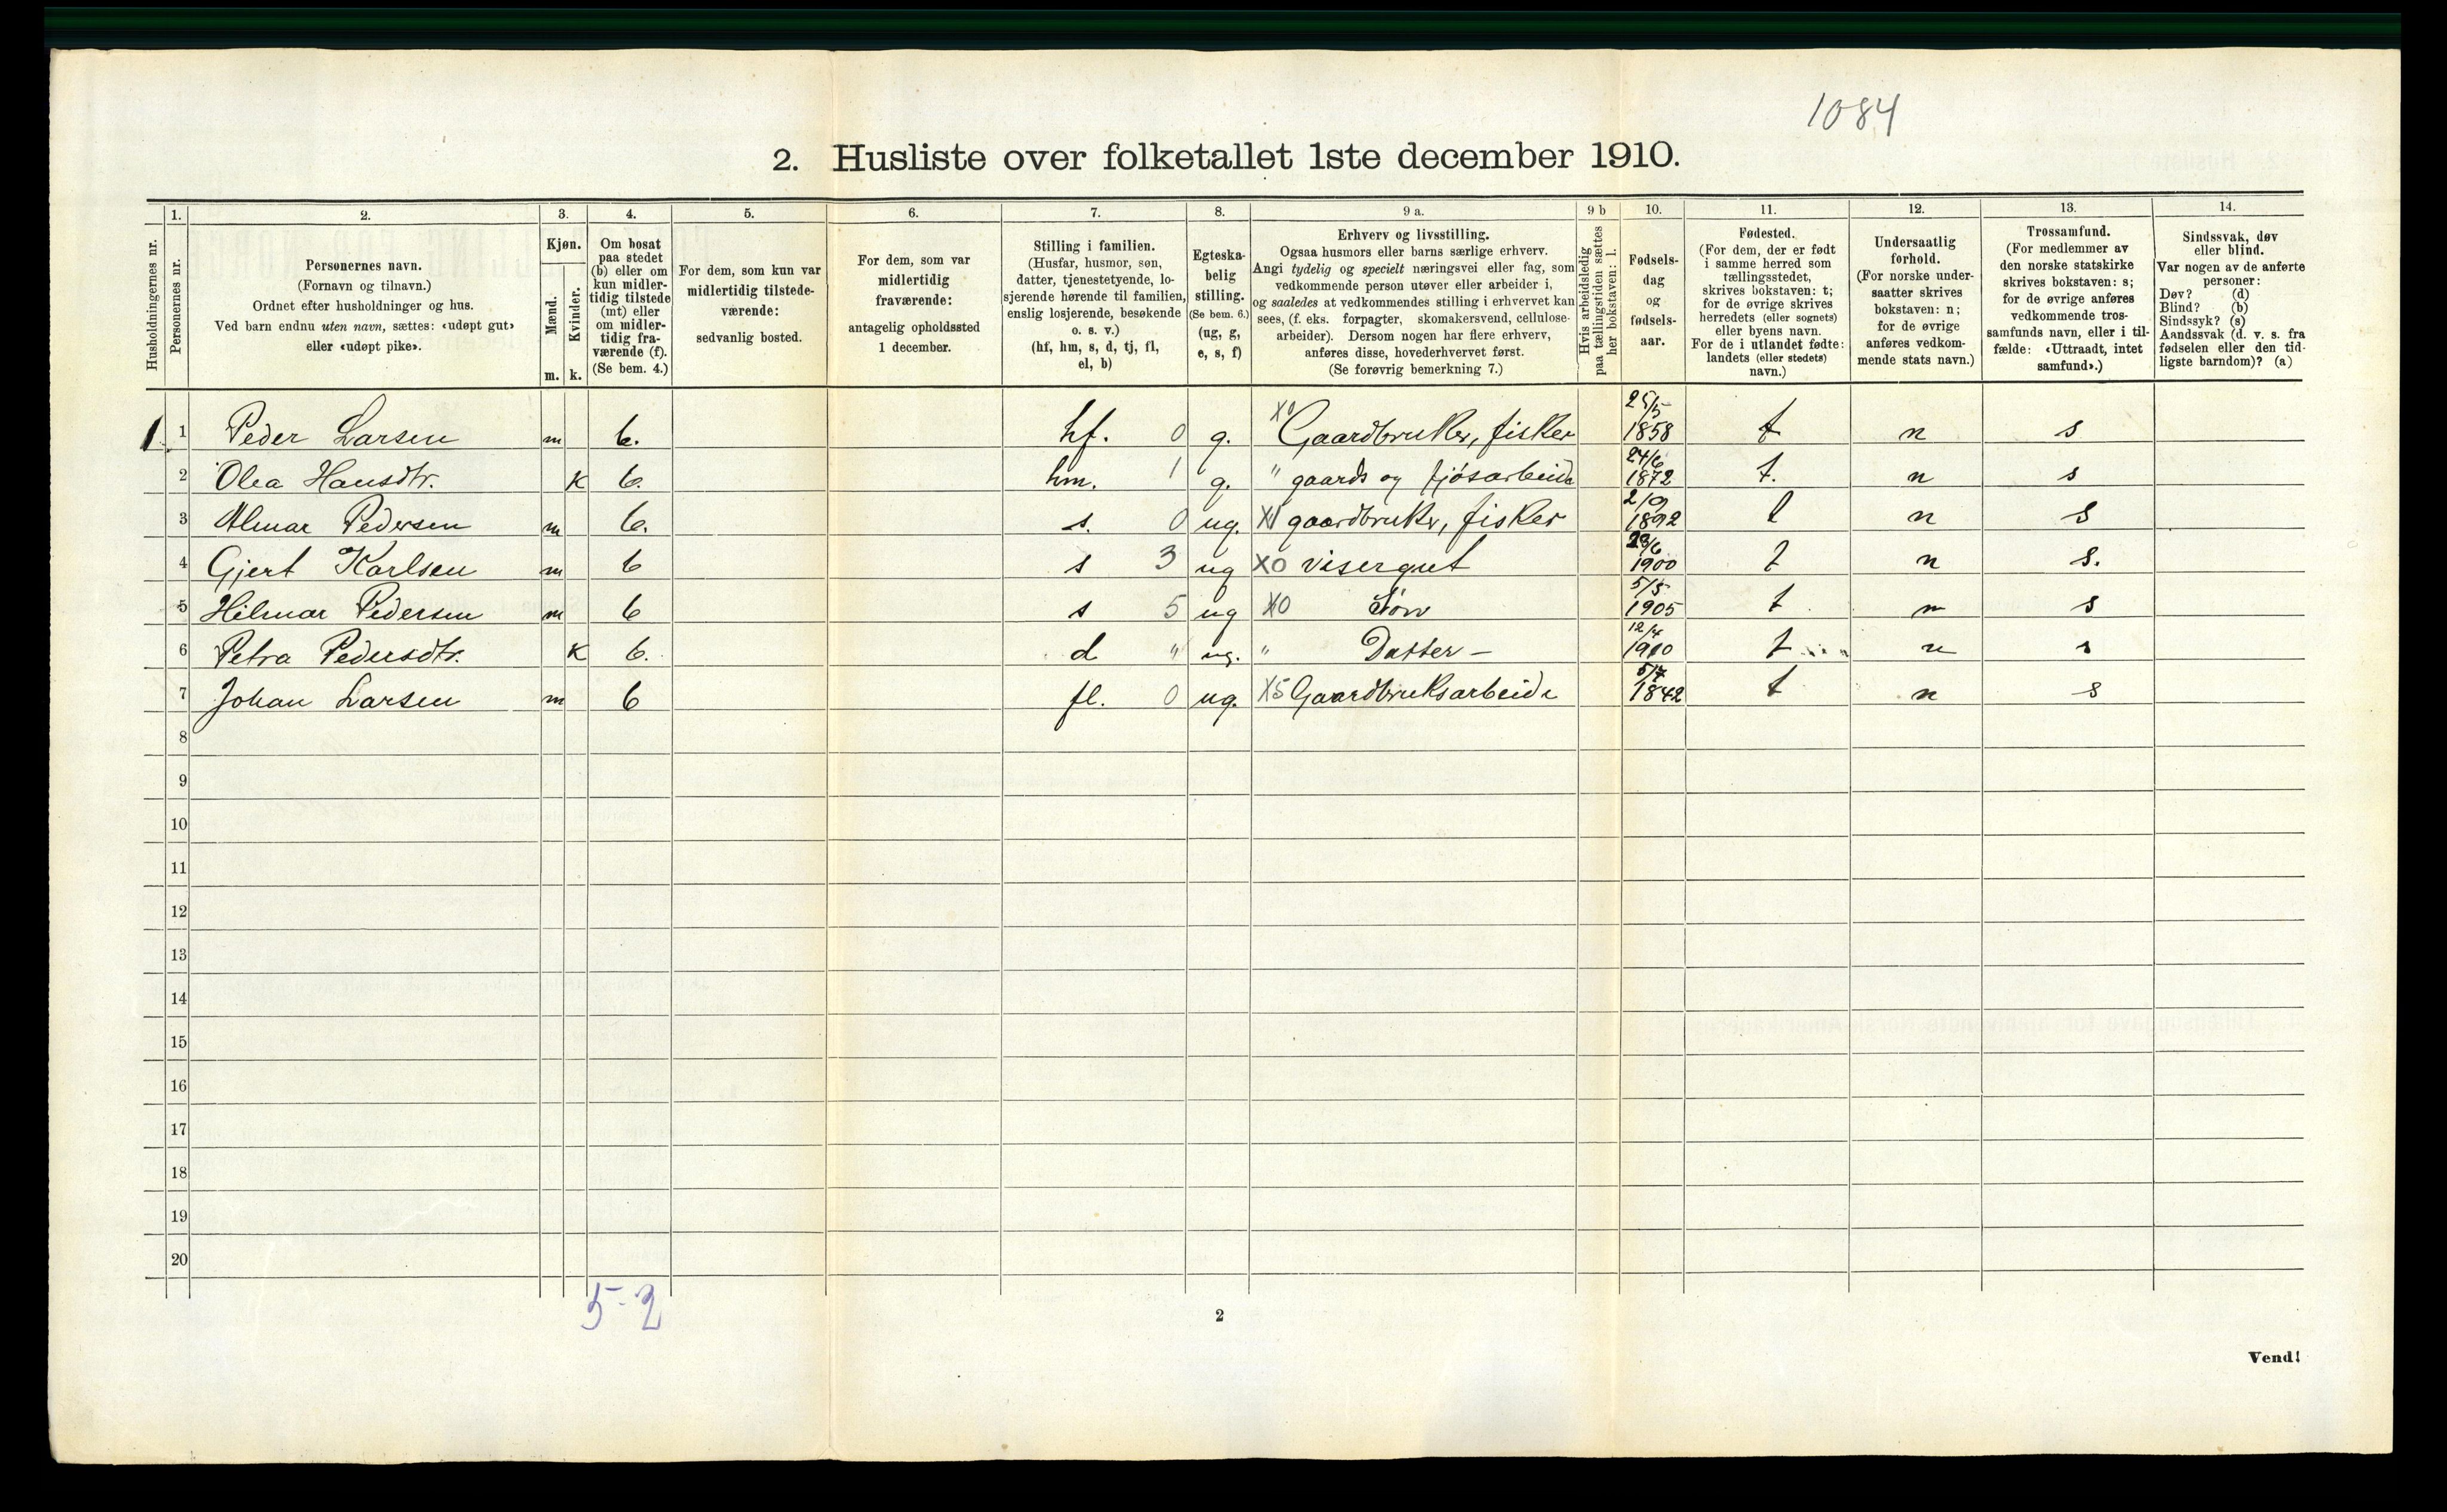 1084
2. Husliste over folketallet 1ste december 1910.
1. 2. 3. 4. 5. 6. 7. 8. 9 a. 9 b 10. 11. 12. 13. 14.
Husholdningernes nr.
Personernes nr.
Personernes navn.
(Fornavn og tilnavn.)
Ordnet efter husholdninger og hus.
Ved barn endnu uten navn, sættes: «udøpt gut»
eller «udøpt pike».
Kjøn.
Mænd.
Kvinder.
m. k.
Om bosat
paa stedet
(b) eller om
kun midler-
tidig tilstede
(mt) eller
om midler-
tidig fra-
værende (f).
(Se bem. 4.)
For dem, som kun var
midlertidig tilstede-
værende:
sedvanlig bosted.
For dem, som var
midlertidig
fraværende:
antagelig opholdssted
1 december.
Stilling i familien.
(Husfar, husmor, søn,
datter, tjenestetyende, lo-
sjerende hørende til familien,
enslig losjerende, besøkende
o. s. v.)
(hf, hm, s, d, tj, fl,
el, b)
Egteska-
belig
stilling.
(Se bem. 6.)
(ug, g,
e, s, f)
Erhverv og livsstilling.
Ogsaa husmors eller barns særlige erhverv.
Angi tydelig og specielt næringsvei eller fag, som
vedkommende person utøver eller arbeider i,
og saaledes at vedkommendes stilling i erhvervet kan
sees, (f. eks. forpagter, skomakersvend, cellulose-
arbeider). Dersom nogen har flere erhverv,
anføres disse, hovederhvervet først.
(Se forøvrig bemerkning 7.)
Hvis arbeidsledig
paa tællingstiden sættes
her bokstaven: l.
Fødsels-
dag
og
fødsels-
aar.
Fødested.
(For dem, der er født
i samme herred som
tællingsstedet,
skrives bokstaven: t;
for de øvrige skrives
herredets (eller sognets)
eller byens navn.
For de i utlandet fødte:
landets (eller stedets)
navn.)
Undersaatlig
forhold.
(For norske under-
saatter skrives
bokstaven: n;
for de øvrige
anføres vedkom-
mende stats navn.)
Trossamfund.
(For medlemmer av
den norske statskirke
skrives bokstaven: s;
for de øvrige anføres
vedkommende tros-
samfunds navn, eller i til-
fælde: «Uttraadt, intet
samfund».)
Sindssvak, døv
eller blind.
Var nogen av de anførte
personer:
Døv? (d)
Blind? (b)
Sindssyk? (s)
Aandssvak (d. v. s. fra
fødselen eller den tid-
ligste barndom)? (a)
1. 1 Peder Larsen m b. hf. 0 g. X0 Gaardbruker, fisker 25/5 1858 t n s
2 Olea Hansdtr. k b. hm. 1 g. " gaards og fjøsarbeide 24/6 1872 t. n s
3 Almar Pedersen m b. s. 0 ug. X1 gaardbruker, fisker 2/9 1892 t n s
4 Gjert Karlsen m b s 3 ug X0 visergut 1900 t n s.
5 Hilmar Pedersen m b s 5 ug X0 Søn 5/5 1905 t n s
6 Petra Pedersdtr. k b. d " ug. " Datter - 12/4 1910 t n s
7 Johan Larsen m b fl. 0 ug. X5 Gaardbruksarbeide 5/7 1842 t n s
8
9
10
11
12
13
14
15
16
17
18
19
20
5-2
2
Vend!